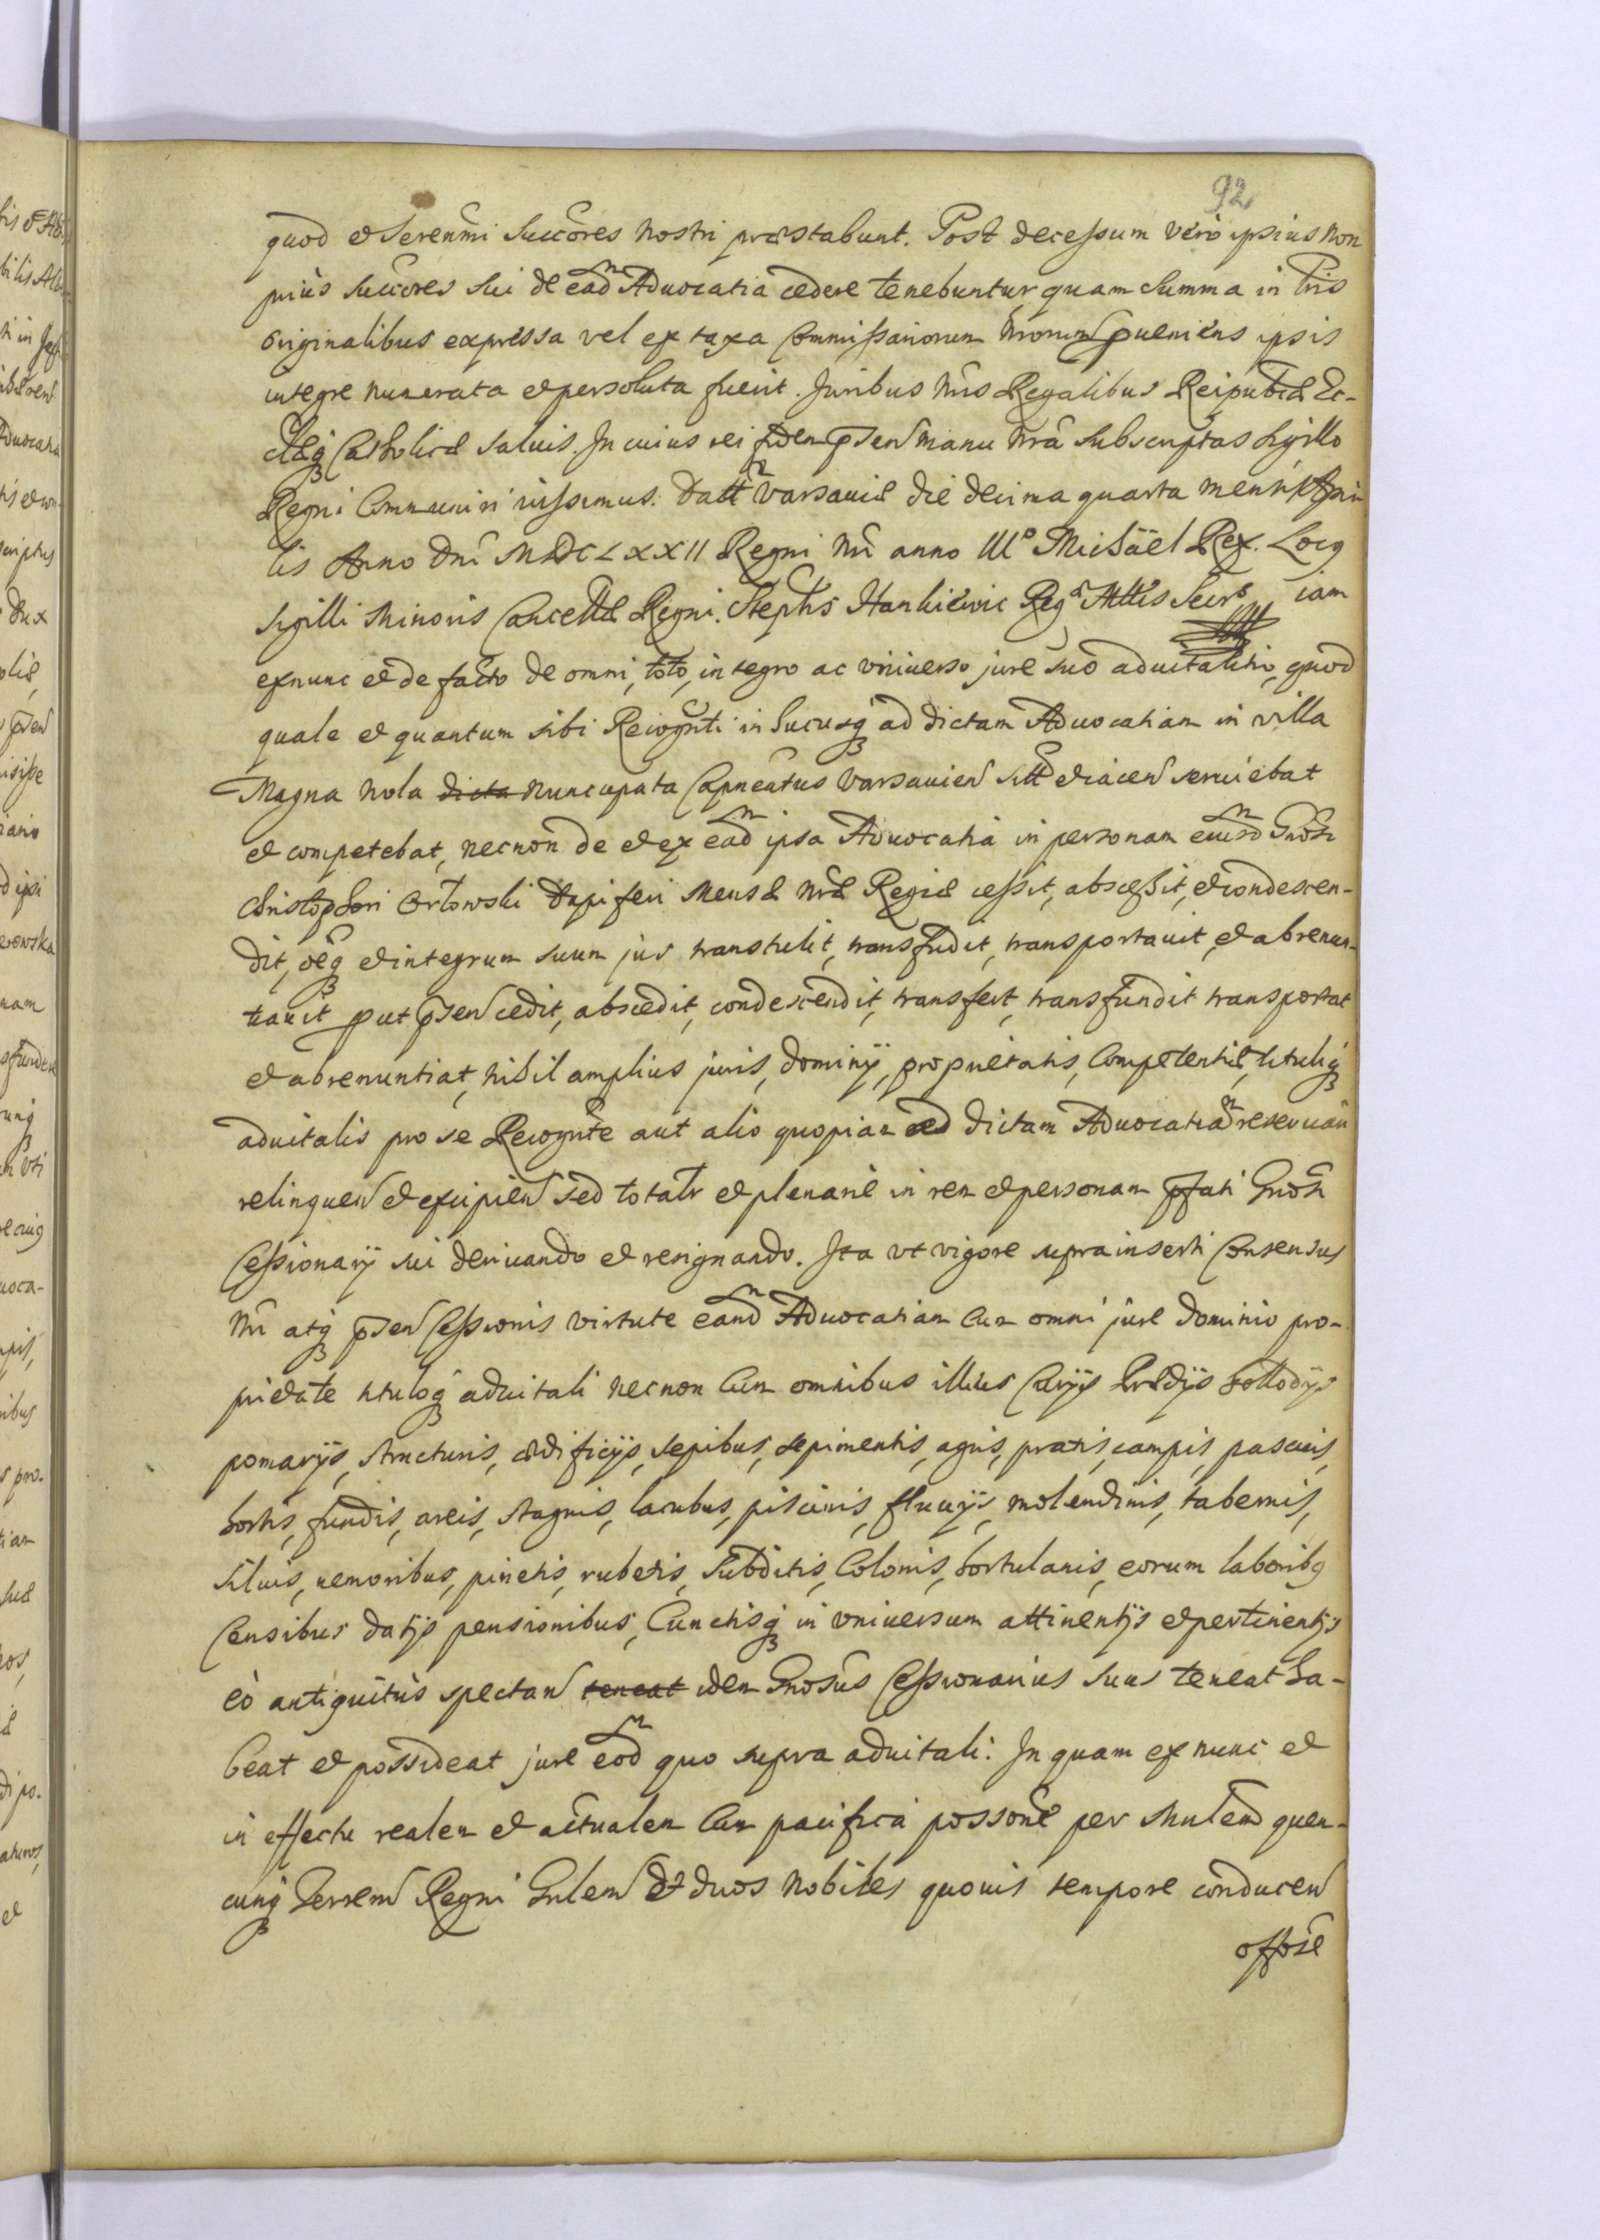 92
quod et Serenmi Succores Nostri præstabunt. Post decessum vero ipsius non
prius Succores sui de ead Advocatia cedere tenebuntur, quam summa in Lris
Originalibus expressa vel ex taxa Commissariorum Nrorum pueniens ipsis
integre numerata et persoluta fuerit. Juribus Nris Regalibus Reipubcæ Ec-
clæq Catholicæ salvis. In cuius rei fidem psen manu Nra subscriptas Sigillo
Regni Communiri iussimus. Datt Varsaviæ die decima quarta mensis Apri
lis Anno Dni MDCLXXII Regni Nri anno IIIº Michäel Rex. Locq
Sigilli Minoris Cancellæ Regni. Stephs Hankiewic Regæ Mttis Secrs iam
exnunc et de facto de omni, toto, integro ac universo jure suo advitalitio, quod
quale et quantum sibi Recognti in hucusq ad dictam Advocatiam in villa
Magna Wola dicta nuncupata Capneatus Varsavien sitt et iacen serviebat
et competebat, necnon de et ex ead ipsa Advocatia in personam eiusd Gnosi
Christophori Orłowski Dapiferi Mensæ Nræ Regiæ cessit, abscessit, et condescen-
dit, oeq et integrum suum jus transtulit, transfudit, transportavit, et abrenun-
tiavit put psen cedit, abscedit, condescendit, transfert, transfundit transportat
et abrenuntiat, nihil amplius juris, dominij, proprietatis, Competentiæ, tituliq
advitalis pro se Recognte aut alio quopiam ad dictam Advocatia reservan
relinquen et excipien sed totalr et plenarie in rem et personam pfati Gnosi
Cessionarij sui derivando et resignando. Ita ut vigore suprainserti Consensus
Nri atq psen Cessionis virtute eand Advocatiam Cum omni jure Dominio pro-
prietate tituloq advitali necnon Cum omnibus illius Curijs Prædijs Allodijs
pomarijs, structuris, ædificijs, sepibus, sepimentis, agris, pratis, campis, pascuis,
hortis, fundis, areis, stagnis, lacubus, piscinis, fluvijs, molendinis, tabernis,
silvis, nemoribus, pinetis, rubetis, Subditis, Colonis, hortulanis, eorum laboribq
Censibus datijs pensionibus, Cunctisq in universum attinentijs et pertinentijs
eo antiquitus spectan teneat idem Gnosus Cessionarius suus teneat ha-
beat et possideat jure eod quo supra advitali. In quam ex nunc et
in effectu realem et actualem Cum pacifica possone per Mnlem quem-
cunq Terrem Regni Gnlem et duos Nobiles quovis tempore conducen
offsie